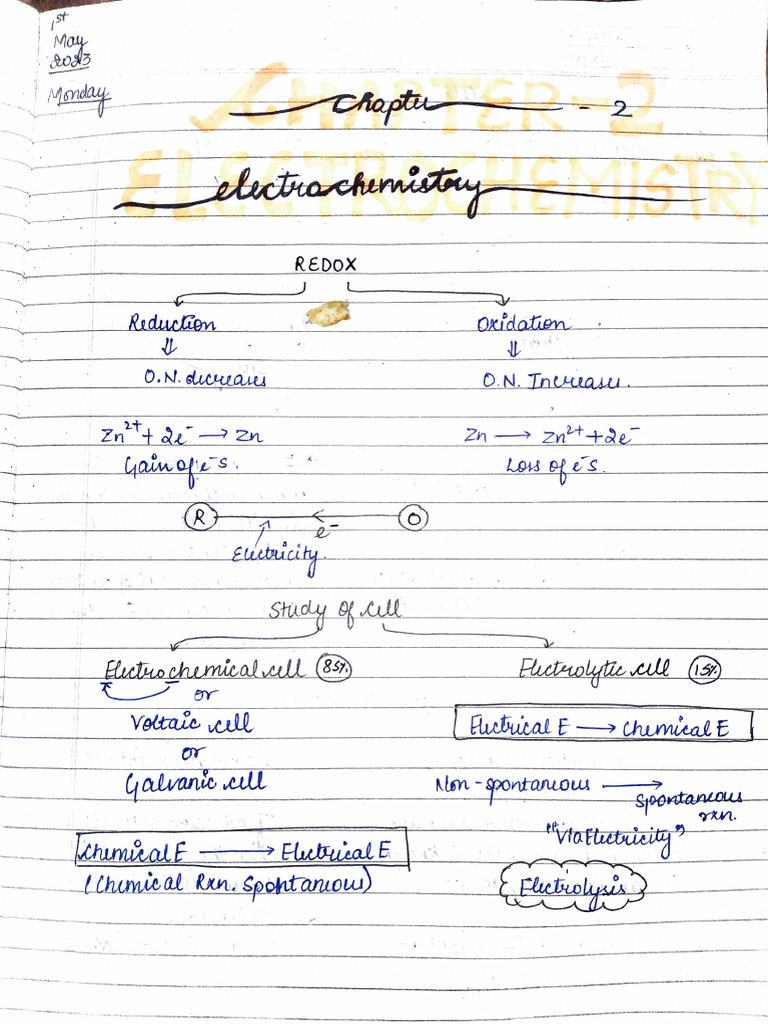 1st
May
2023
Monday
CHAPTER-2
ELECTROCHEMISTRY
Chapter - 2
electrochemistry
REDOX
Reduction Oxidation
⇓ ⇓
O.N. decreases O.N. Increases.
Zn²⁺ + 2e⁻ → Zn Zn → Zn²⁺ + 2e⁻
Gain of e⁻s. Loss of e⁻s.
R O
e⁻
Electricity.
Study of cell
Electrochemical cell 85% Electrolytic cell 15%
or
Voltaic cell Electrical E → Chemical E
or
Galvanic cell Non-spontaneous → Spontaneous
rxn.
"Via Electricity"
Chemical E → Electrical E
(Chemical Rxn. Spontaneous) Electrolysis